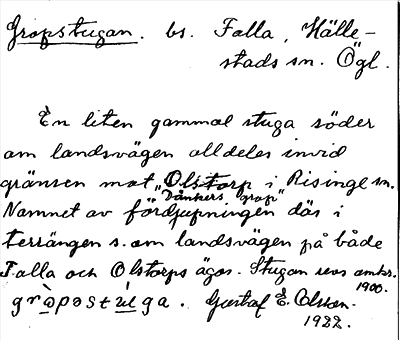 Gropstugan. bs. Falla, Hälle-
stads sn. Ögl.
En liten gammal stuga söder
om landsvägen alldeles invid
gränsen mot Olstorp i Risinge sn.
"Dunkers grop"
Namnet av fördjupningen där i
terrängen s. om landsvägen på både
Falla och Olstorps ägor. Stugan revs omkr.
1900.
gròpəstúga. Gustaf E. Olsson.
1922.